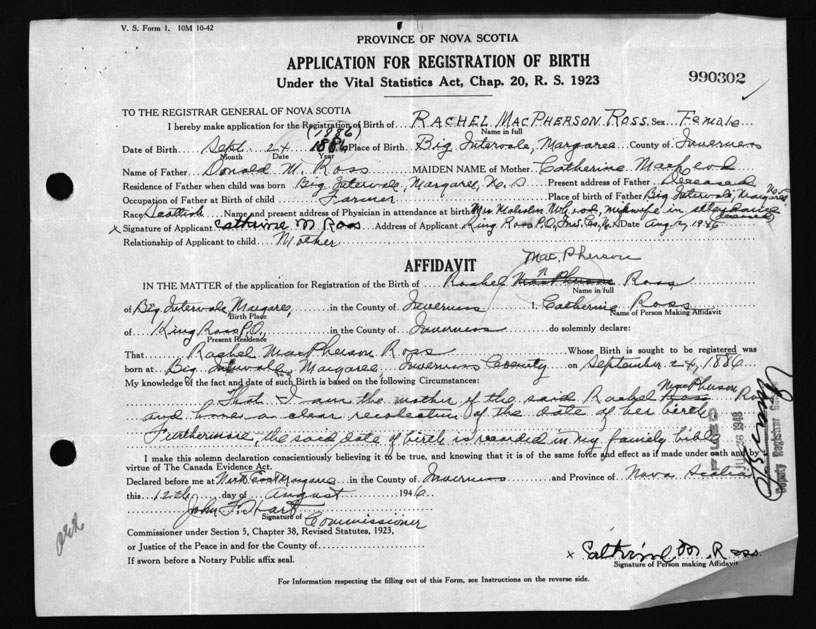 V. S. Form 1. 10M 10-42
PROVINCE OF NOVA SCOTIA
APPLICATION FOR REGISTRATION OF BIRTH
Under the Vital Statistics Act, Chap. 20, R. S. 1923
990302
TO THE REGISTRAR GENERAL OF NOVA SCOTIA
(1886)
I hereby make application for the Registration of Birth of RACHEL MACPHERSON ROSS. Sex Female
Name in full
Date of Birth Sept 24 1886 Place of Birth Big Intervale, Margaree County of Inverness
Month Date Year
Name of Father Donald M. Ross MAIDEN NAME of Mother Catherine MacLeod
Residence of Father when child was born Big Intervale, Margaree, N. S Present address of Father Deceased
Occupation of Father at Birth of child Farmer Place of birth of Father Big Intervale, Margaree N.S
Race Scottish Name and present address of Physician in attendance at birth Mrs Malcolm McLeod, midwife in attendance deceased
x Signature of Applicant Catherine M Ross Address of Applicant King Ross P.O., Inv. Co., N.S Date Aug 12, 1946
Relationship of Applicant to child Mother
AFFIDAVIT
MacPherson
IN THE MATTER of the application for Registration of the Birth of Rachel MacPherson Ross
Name in full
of Big Intervale Margaree, in the County of Inverness I, Catherine Ross
Birth Place Name of Person Making Affidavit
of King Ross P.O., in the County of Inverness do solemnly declare:
Present Residence
That Rachel MacPherson Ross Whose Birth is sought to be registered was
born at Big Intervale, Margaree, Inverness County on September 24, 1886
My knowledge of the fact and date of such Birth is based on the following Circumstances:
MacPherson
That I am the mother of the said Rachel Ross Ross
and have a clear recollection of the date of her birth
Furthermore, the said date of birth is recorded in my family bible
I make this solemn declaration conscientiously believing it to be true, and knowing that it is of the same force and effect as if made under oath and by
virtue of The Canada Evidence Act.
Declared before me at North East Margaree in the County of Inverness and Province of Nova Scotia
this 12th day of August 1946
John F. Hart
Signature of Commissioner
Commissioner under Section 5, Chapter 38, Revised Statutes, 1923,
or Justice of the Peace in and for the County of
If sworn before a Notary Public affix seal.
x Catherine M. Ross
Signature of Person making Affidavit
For Information respecting the filling out of this Form, see Instructions on the reverse side.
FILED
26 1948
Deputy Registrar